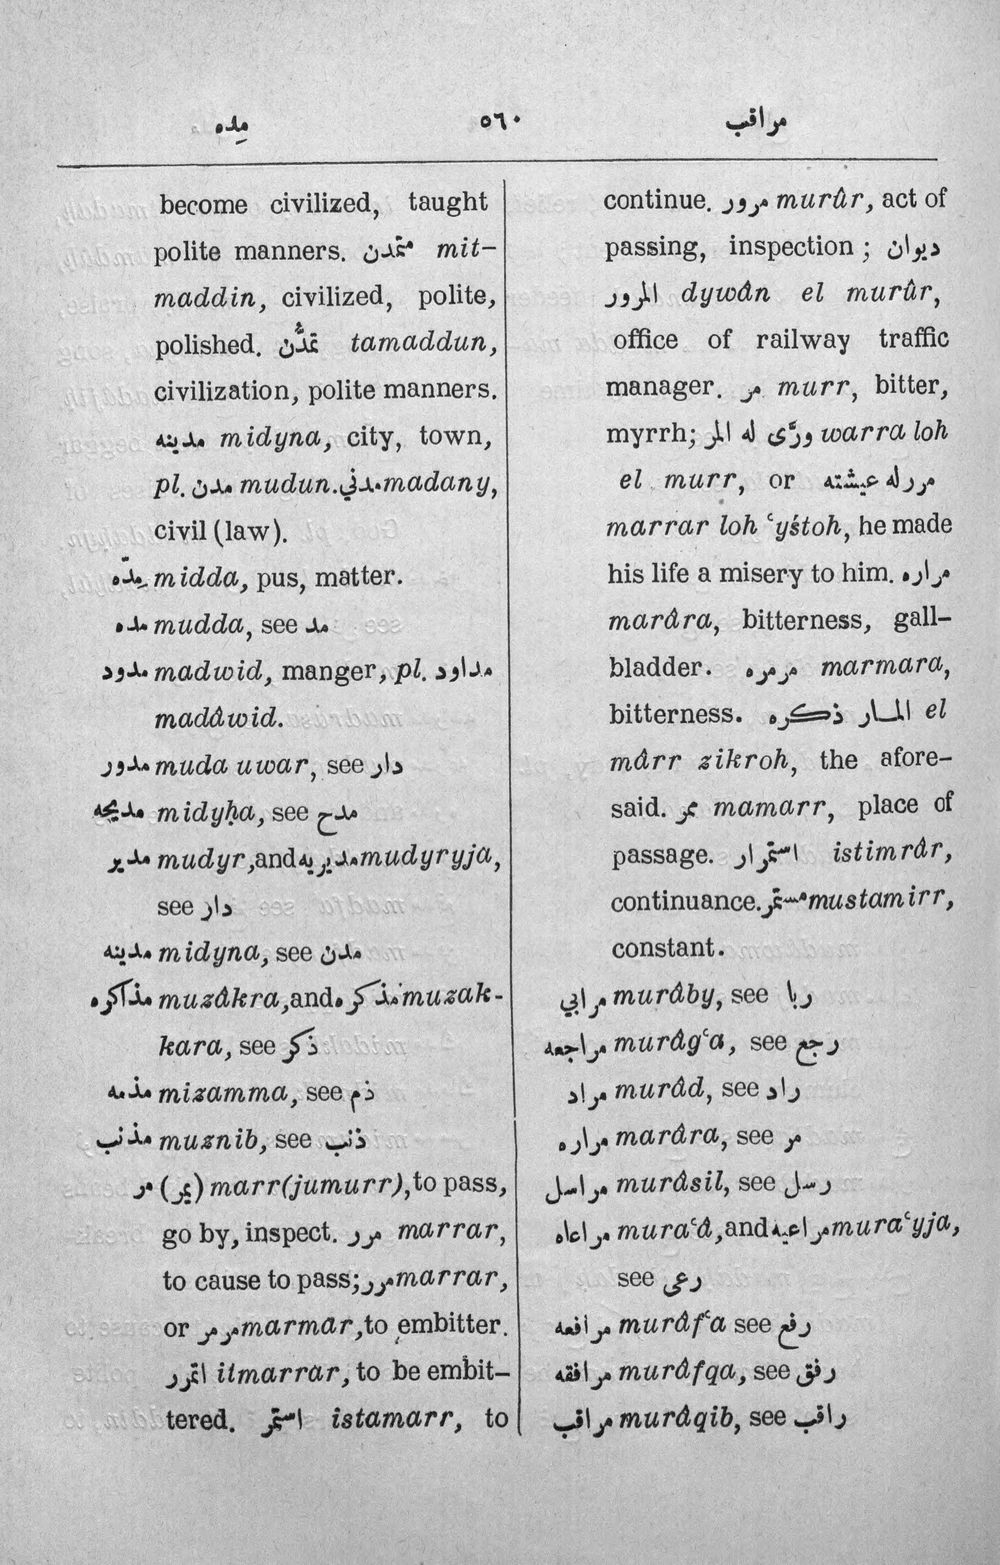 مِده ٥٦٠ مراقب
become civilized, taught
polite manners. متمدن mit-
maddin, civilized, polite,
polished. تمدُّن tamaddun,
civilization, polite manners.
مدينه midyna, city, town,
pl. مدن mudun. مدني madany,
civil (law).
مِدّه midda, pus, matter.
مده mudda, see مد
مدود madwid, manger, pl. مداود
madâwid.
مدور muda uwar, see دار
مديحه midyḥa, see مدح
مدير mudyr, and مديريه mudyryja,
see دار
مدينه midyna, see مدن
مذاكره muzâkra, and مذكره muzak-
kara, see ذكر
مذمه mizamma, see ذم
مذنب muznib, see ذنب
مر (يمر) marr (jumurr), to pass,
go by, inspect. مرر marrar,
to cause to pass; مرر marrar,
or مرمر marmar, to embitter.
اتمرر itmarrar, to be embit-
tered. استمر istamarr, to
continue. مرور murûr, act of
passing, inspection ; ديوان
المرور dywân el murûr,
office of railway traffic
manager. مر murr, bitter,
myrrh; ورّى له المر warra loh
el murr, or مررله عيشته
marrar loh ʿyśtoh, he made
his life a misery to him. مراره
marâra, bitterness, gall-
bladder. مرمره marmara,
bitterness. المار ذكره el
mârr zikroh, the afore-
said. ممر mamarr, place of
passage. استمرار istimrâr,
continuance. مستمر mustamirr,
constant.
مرابي murâby, see ربا
مراجعه murâgʿa, see رجع
مراد murâd, see راد
مراره marâra, see مر
مراسل murâsil, see رسل
مراعاه muraʿâ, and مراعيه muraʿyja,
see رعى
مرافعه murâfʿa see رفع
مرافقه murâfqa, see رفق
مراقب murâqib, see راقب